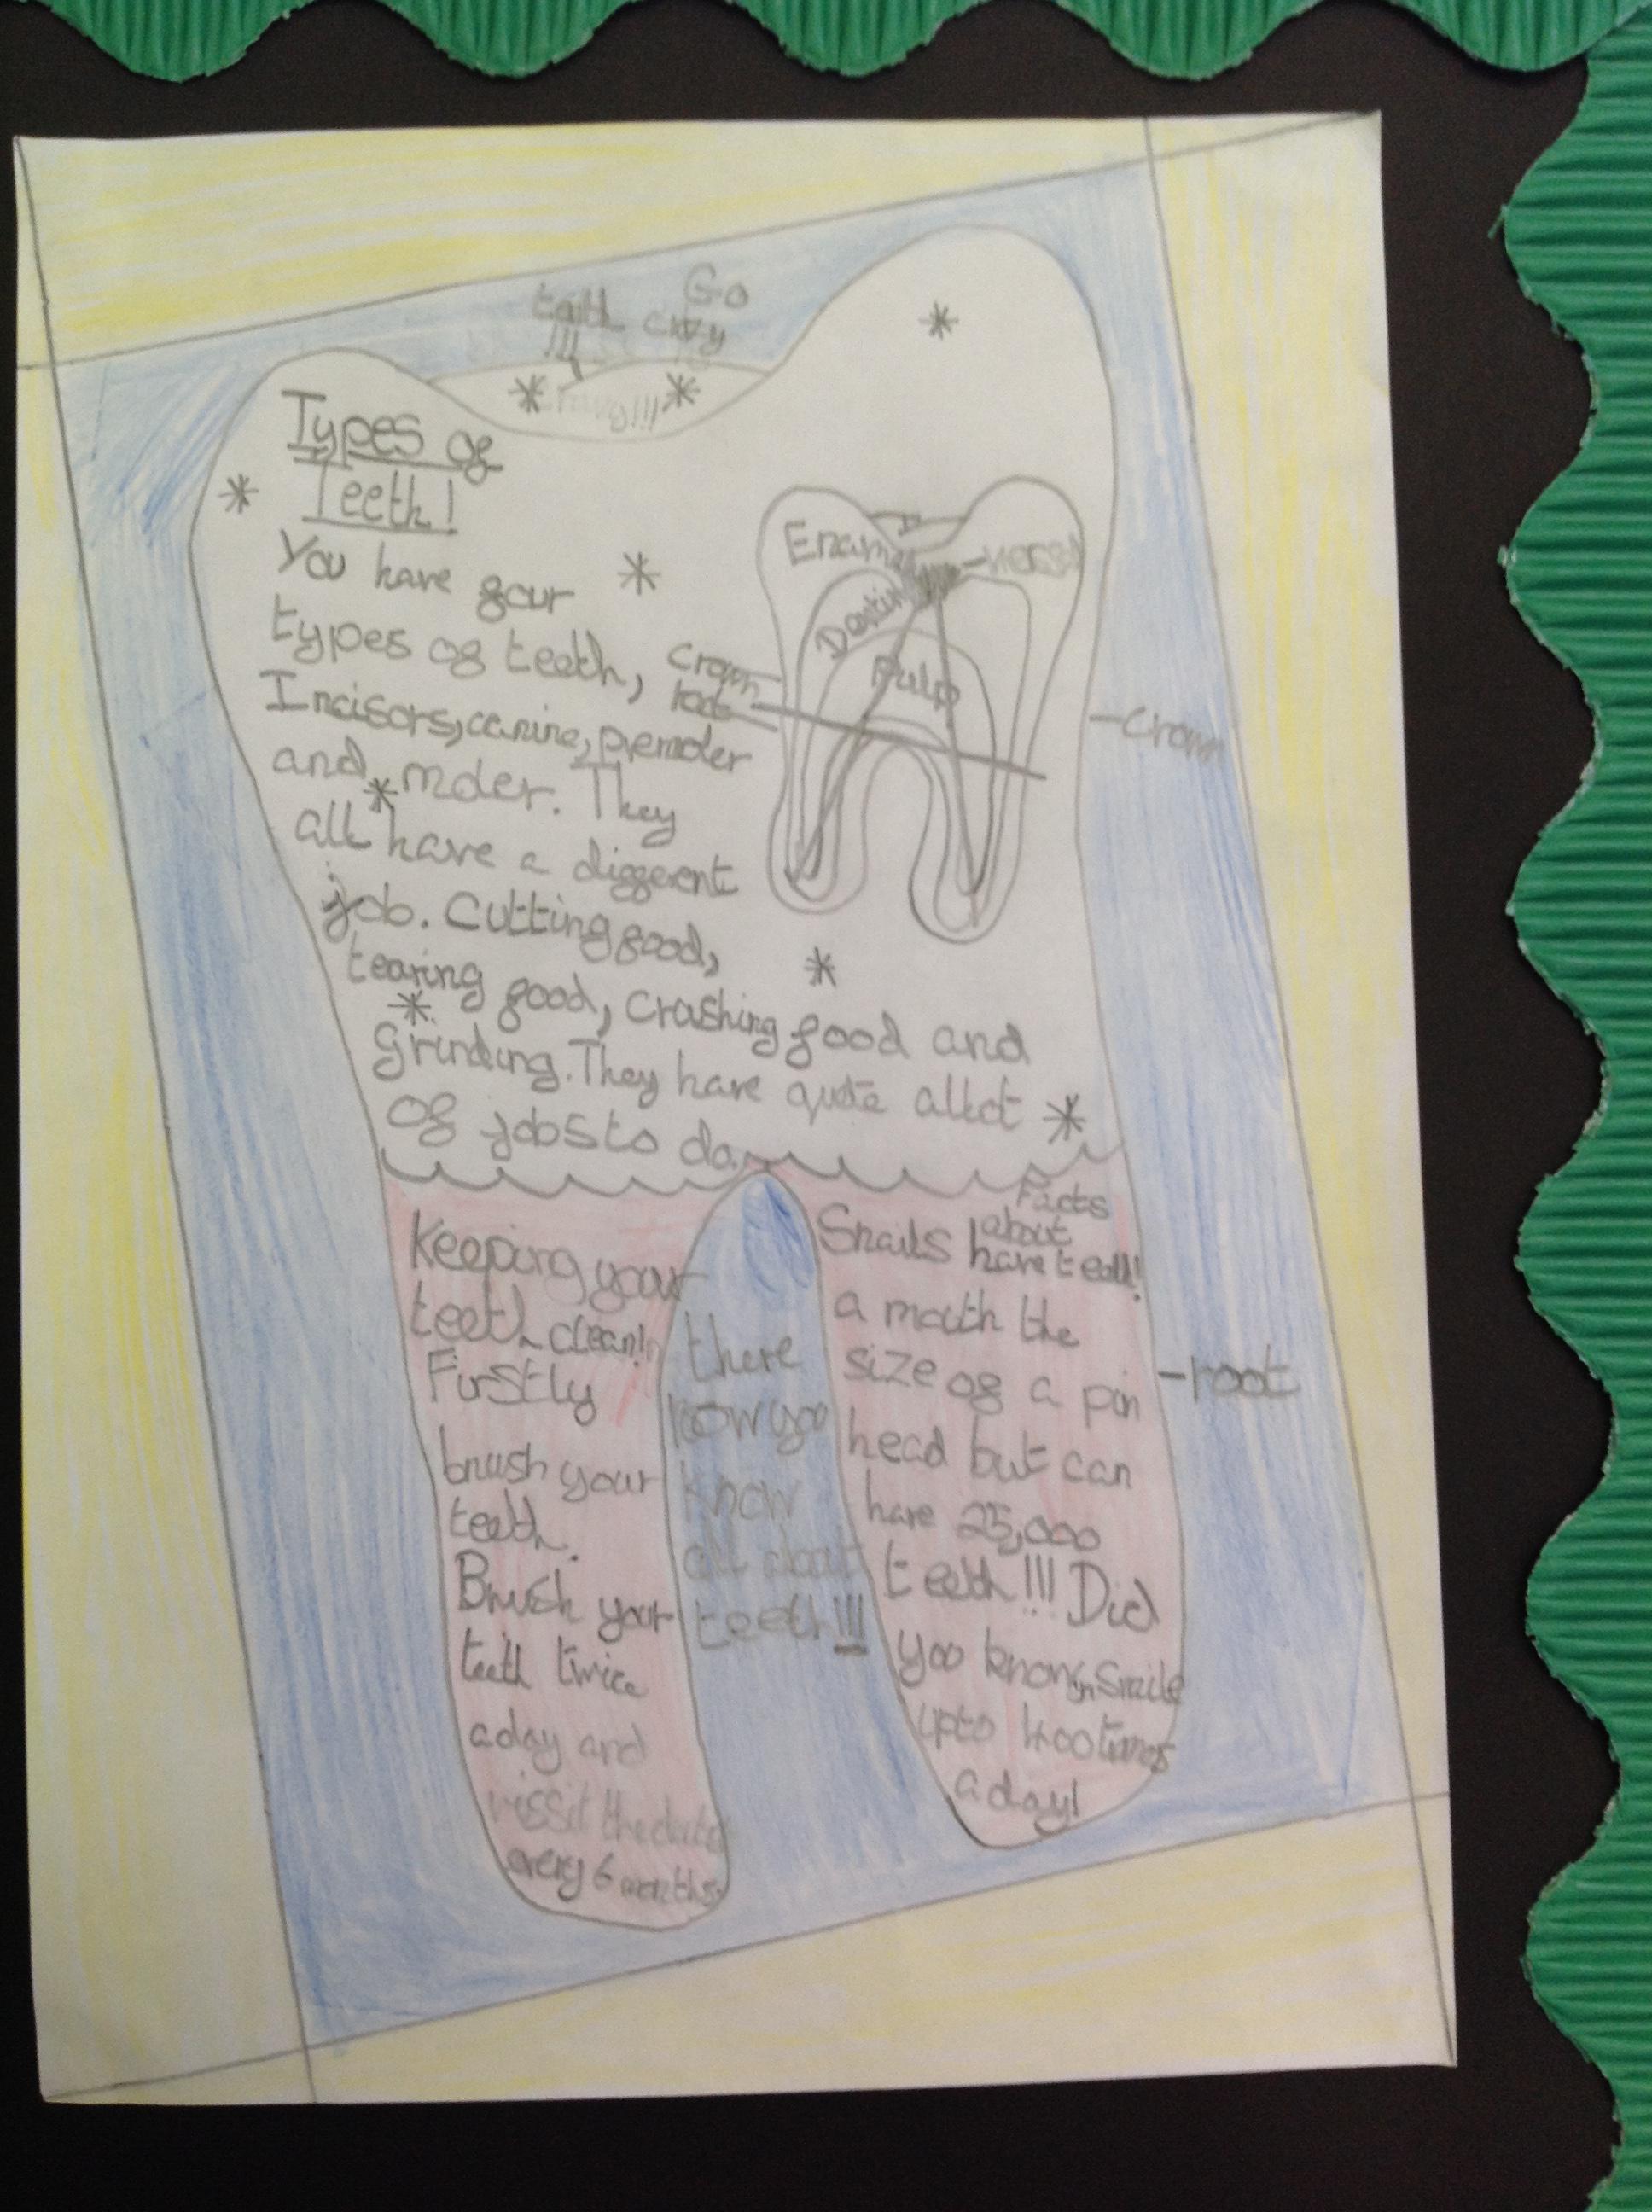 Go
teeth crazy
!!!
Types of
Teeth!
You have four
types of teeth,
Incisors, canine, premoler
and moler. They
all have a different
job. Cutting food,
tearing food, crashing food and
Grinding. They have quite allot
of jobs to do.
Enamel
Dentin
Pulp
crown
root
-crown
Keeping your
teeth clean!
Firstly
brush your
teeth.
Brush your
teeth twice
a day and
vissit the
every 6 months.
there
now you
know
all about
teeth!!!
Facts
about
Snails have teeth!
a mouth the
size of a pin
head but can
have 25,000
teeth!!! Did
yoo know, Smile
upto 400 times
a day!
-root